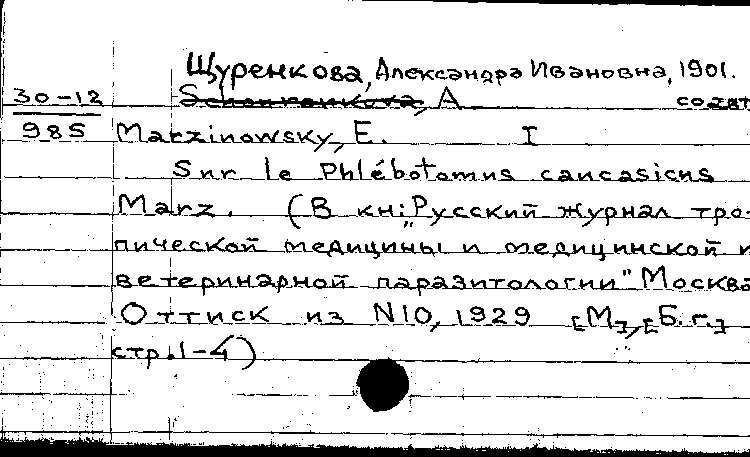 Щуренкова, Александра Ивановна, 1901.
30-12 Schourenkova, A соавт
985 Marzinowsky, E. I
Sur le Phlébotomus caucasicus
Marz. (В кн: „Русский журнал тро-
пической медицины и медицинской и
ветеринарной паразитологии" Москва
Оттиск из N10, 1929 [М], [Б.г.]
стр. 1-4)